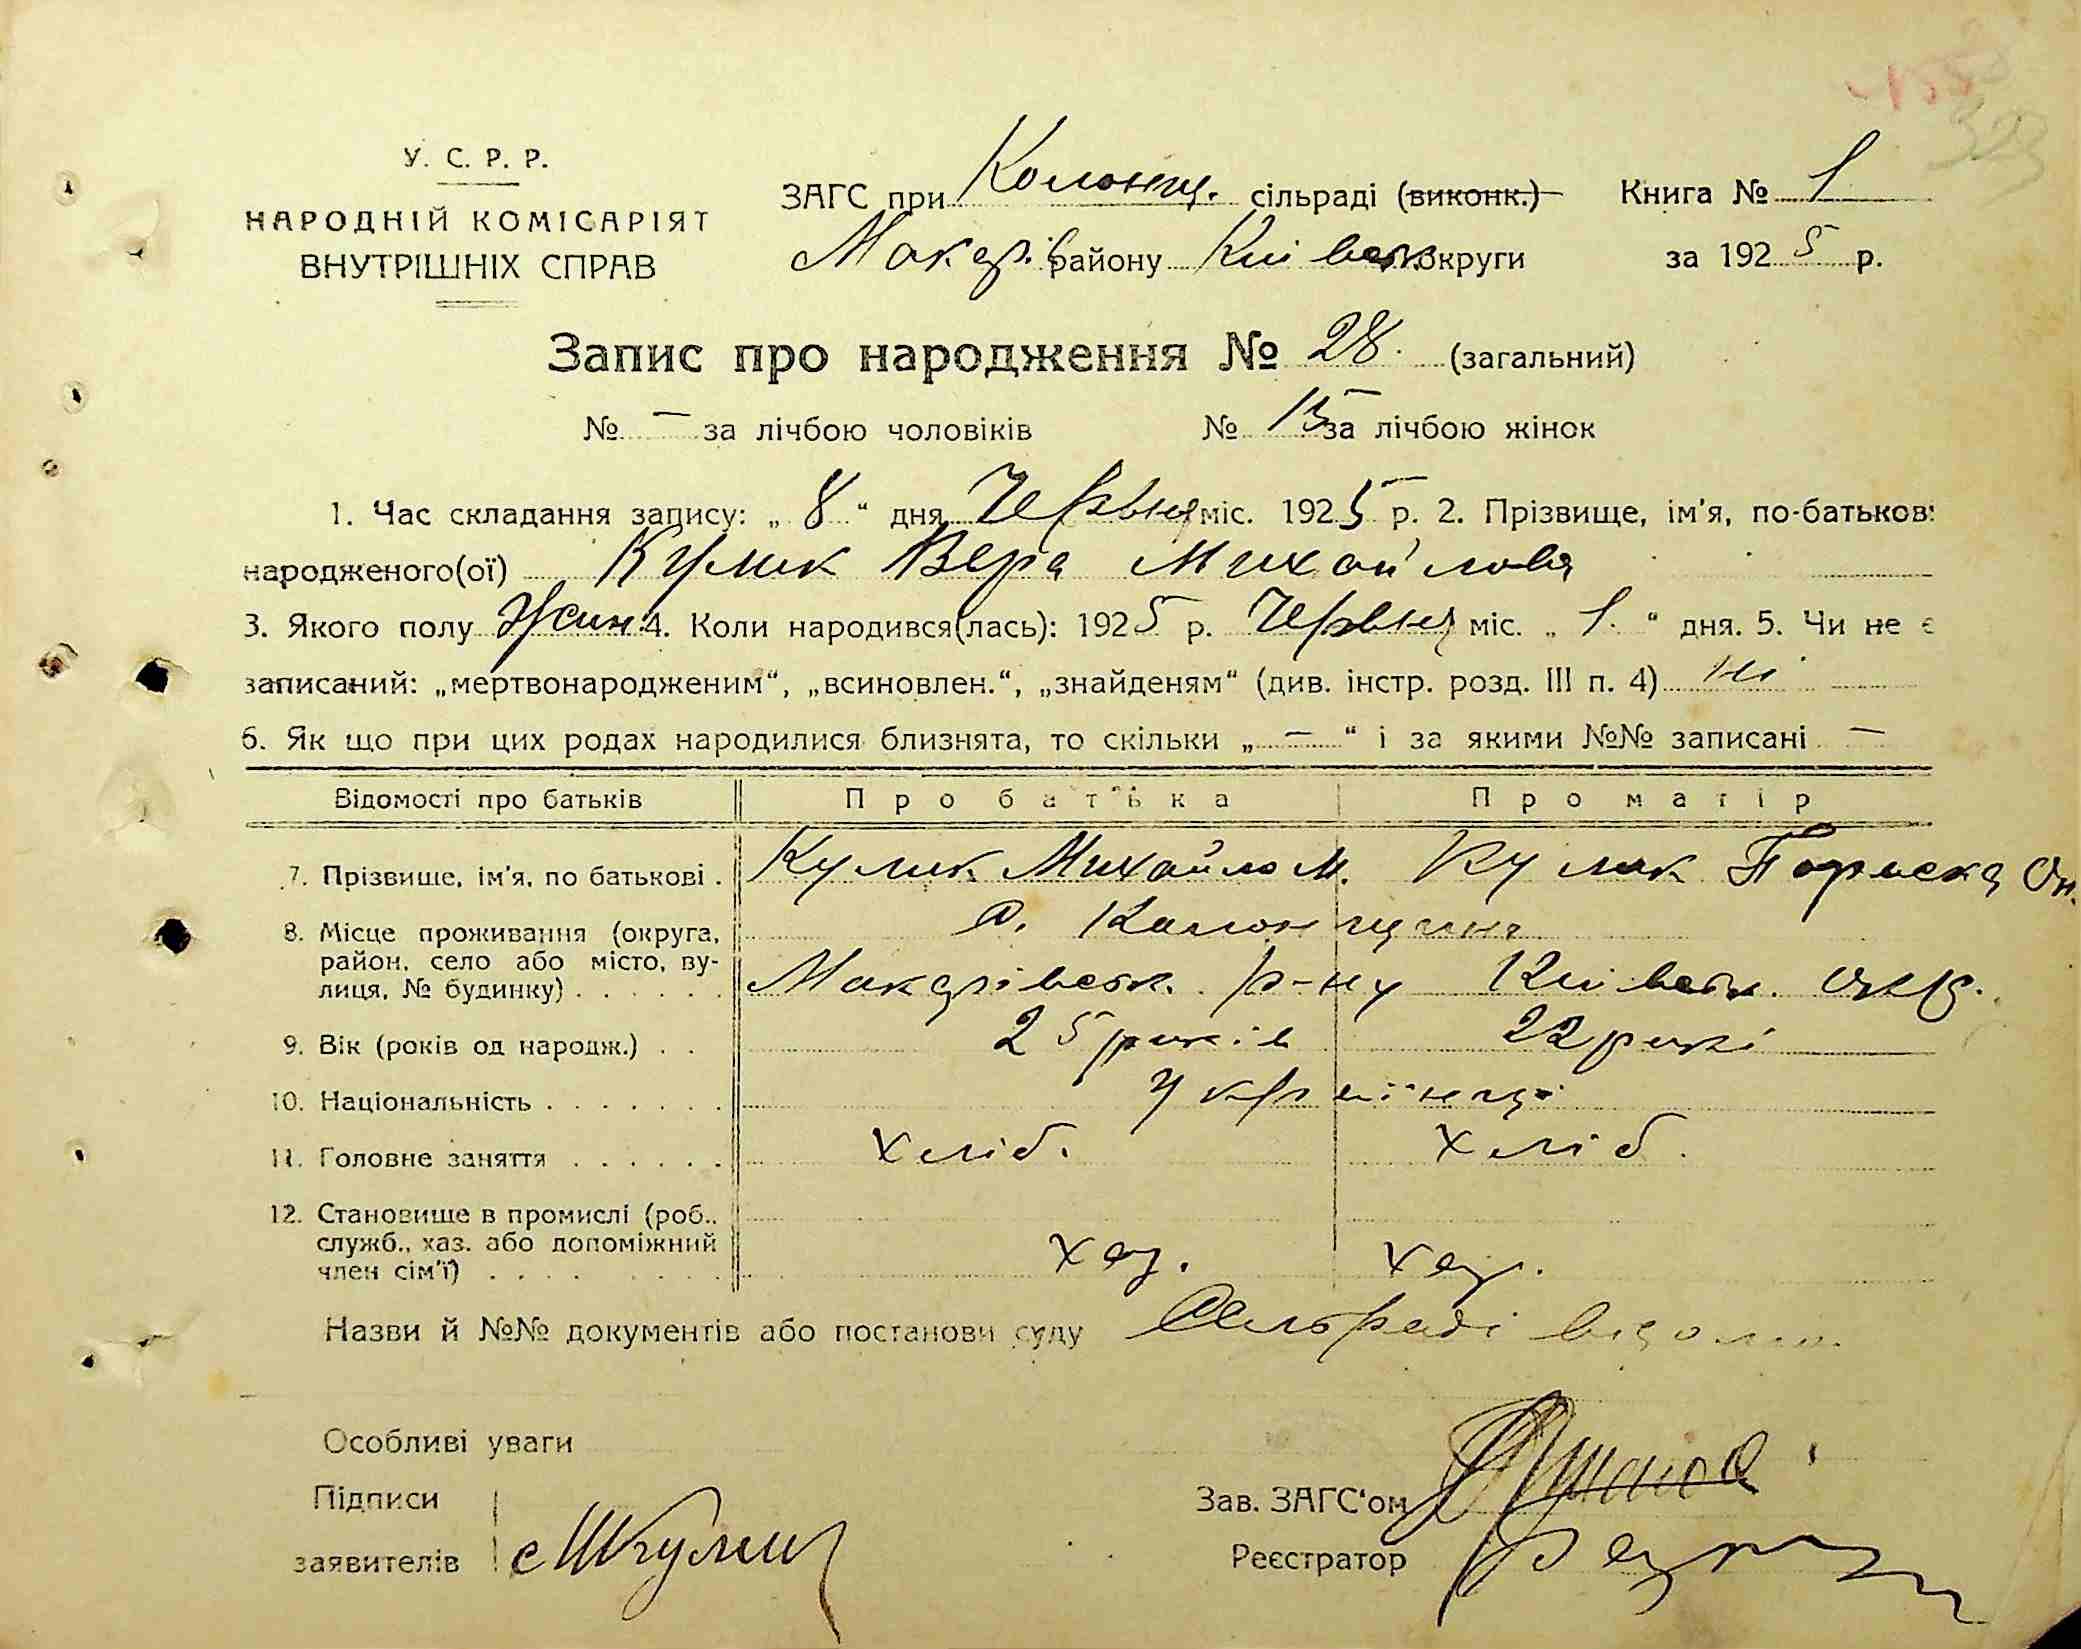 323
У. С. Р. Р.
НАРОДНІЙ КОМІСАРІЯТ
ВНУТРІШНІХ СПРАВ
ЗАГС при Колонщ. сільраді (виконк.) Книга № 1
Макарів району Київськ округи за 1925 р.
Запис про народження № 28. (загальний)
№ — за лічбою чоловіків № 15 за лічбою жінок
1. Час складання запису: „8“ дня Червня міс. 1925 р. 2. Прізвище, ім'я, по-батькові
народженого(ої) Кулик Вера Михайлова
3. Якого полу Жін. 4. Коли народився(лась): 1925 р. Червня міс. „1.“ дня. 5. Чи не є
записаний: „мертвонародженим“, „всиновлен.“, „знайденям“ (див. інстр. розд. III п. 4) ні
6. Як що при цих родах народилися близнята, то скільки „—“ і за якими №№ записані —
Відомості про батьків Про батька Про матір
7. Прізвище, ім'я, по батькові . Кулик Михайло М. Кулик
8. Місце проживання (округа, с. Колонщина
район, село або місто, ву-
лиця, № будинку) . . . . . . Макарівськ. р-ну Київськ. окр.
9. Вік (років од народж.) . . 25 років 22 роки
10. Національність . . . . . . . Українці
11. Головне заняття . . . . . . хліб. хліб.
12. Становище в промислі (роб.,
служб., хаз. або допоміжний
член сім'ї) . . . . . . . . хаз. хаз.
Назви й №№ документів або постанови суду Сельраді відомо.
Особливі уваги
Підписи
заявителів
Зав. ЗАГС'ом
Реєстратор